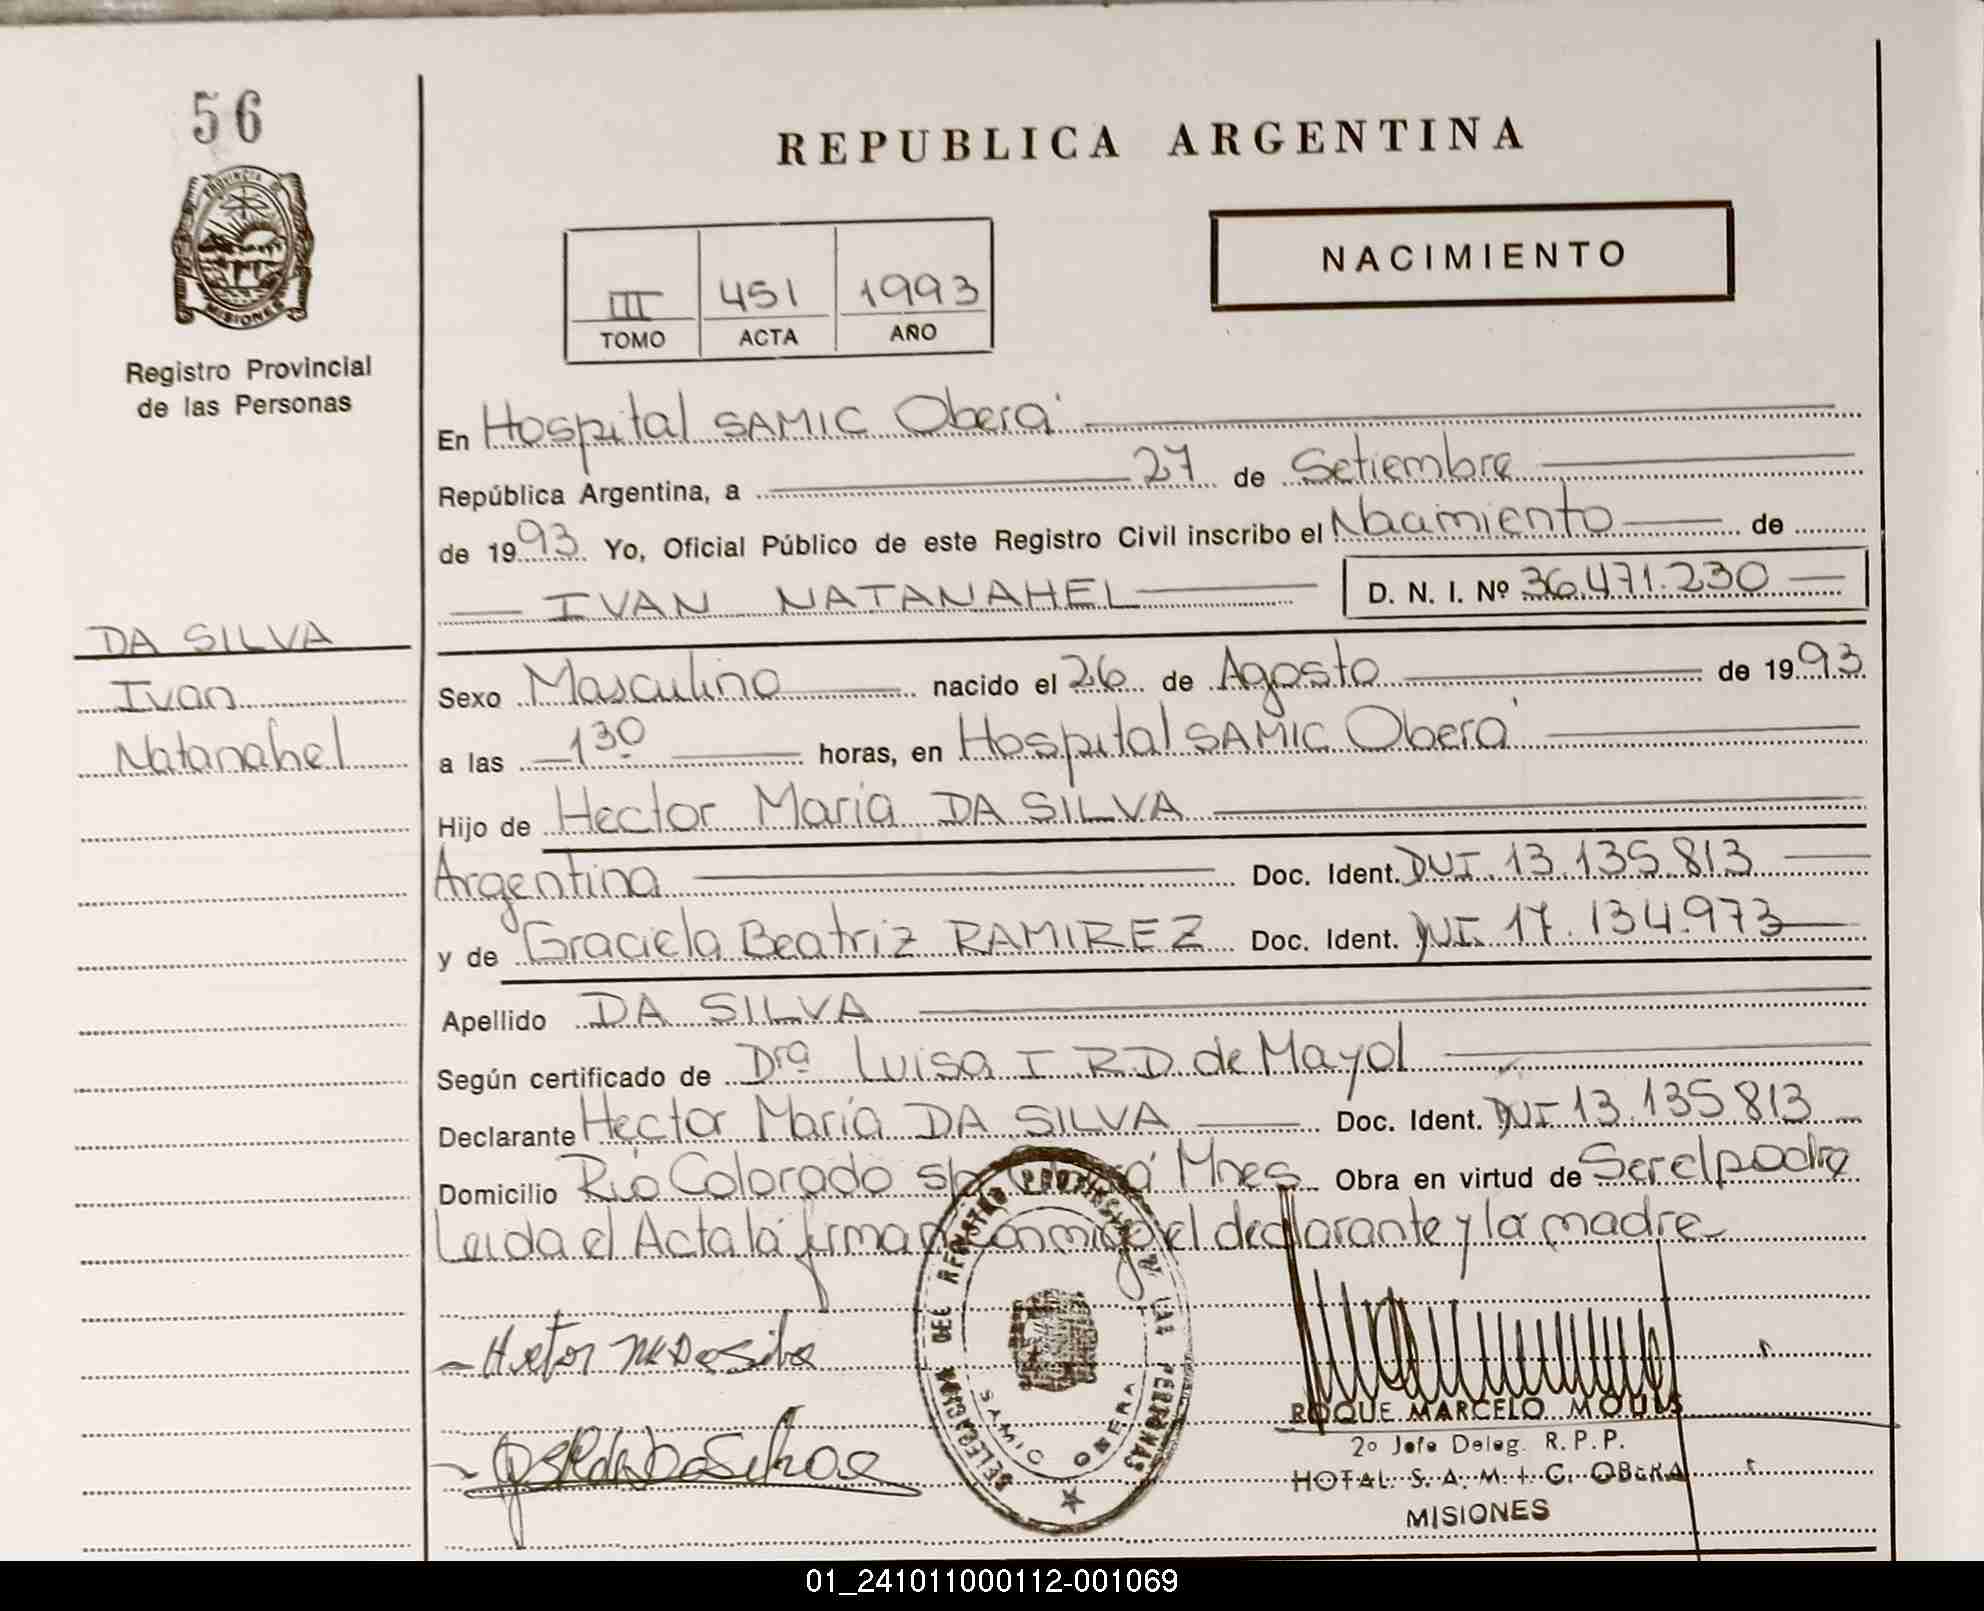 56
REPUBLICA ARGENTINA
PROVINCIA DE
MISIONES
NACIMIENTO
III 451 1993
TOMO ACTA AÑO
Registro Provincial
de las Personas
En Hospital SAMIC Oberá
República Argentina, a 27 de Setiembre
de 1993 Yo, Oficial Público de este Registro Civil inscribo el Nacimiento de
IVAN NATANAHEL D. N. I. Nº 36.471.230
DA SILVA
Ivan
Natanahel
Sexo Masculino nacido el 26 de Agosto de 1993
a las 1 30 horas, en Hospital SAMIC Oberá
Hijo de Hector María DA SILVA
Argentina Doc. Ident. DNI. 13.135.813
y de Graciela Beatriz RAMIREZ Doc. Ident. DNI. 17.134.973
Apellido DA SILVA
Según certificado de Drª Luisa I. R.D. de Mayol
Declarante Hector María DA SILVA Doc. Ident. DNI 13.135.813
Domicilio Río Colorado s/n Oberá Mnes Obra en virtud de Ser el padre
Leida el Acta la firman conmigo el declarante y la madre
Hector M Da Silva
DELEGACION DEL REGISTRO PROVINCIAL DE LAS PERSONAS
SAMIC OBERA
ROQUE MARCELO MOULS
2º Jefe Deleg. R. P. P.
HOTAL. S. A. M. I. C. OBERA
MISIONES
01_241011000112-001069